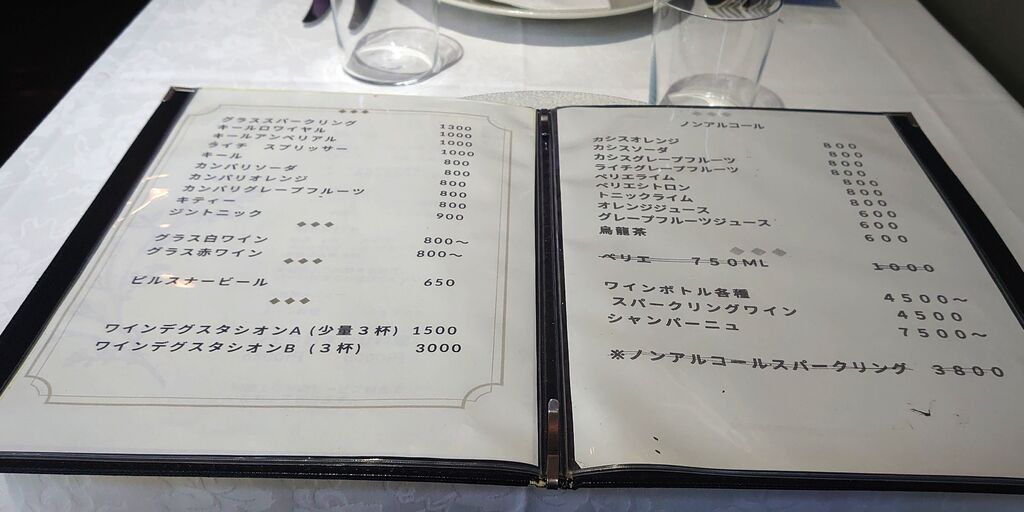 グラススパークリング 1300
キールロワイヤル 1000
キールアンペリアル 1000
ライチ　スプリッサー 1000
キール 800
カンパリソーダ 800
カンパリオレンジ 800
カンパリグレープフルーツ 800
キティー 800
ジントニック 900
グラス白ワイン 800～
グラス赤ワイン 800～
ピルスナービール 650
ワインデグスタシオンA (少量３杯) 1500
ワインデグスタシオンB (３杯) 3000
ノンアルコール
カシスオレンジ ８００
カシスソーダ ８００
カシスグレープフルーツ ８００
ライチグレープフルーツ ８００
ペリエライム ８００
ペリエシトロン ８００
トニックライム ８００
オレンジジュース ６００
グレープフルーツジュース ６００
烏龍茶 ６００
ペリエ　７５０ML １０００
ワインボトル各種 ４５００～
スパークリングワイン ４５００
シャンパーニュ ７５００～
※ノンアルコールスパークリング ３８００